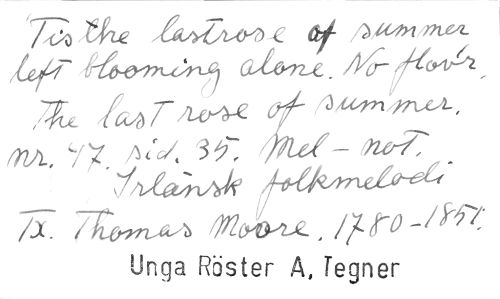 'Tis the last rose of summer
left blooming alone. No flov'r.
The last rose of summer.
nr. 47. sid. 35. Mel-not.
Irländsk folkmelodi
Tx. Thomas Moore. 1780-1851.
Unga Röster A, Tegner